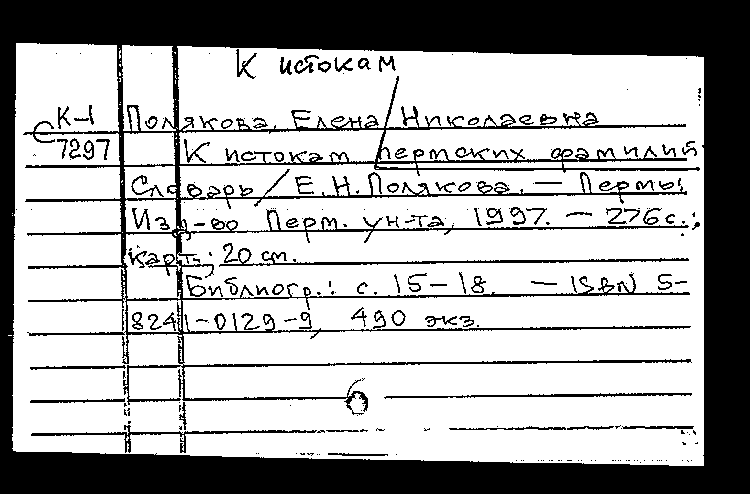 К истокам
К-1 Полякова, Елена Николаевна
С7297 К истокам пермских фамилий:
Словарь / Е. Н. Полякова. — Пермь:
Изд-во Перм. ун-та, 1997. — 276 с.:
карт.; 20 см.
Библиогр.: с. 15-18. — ISBN 5-
8241-0129-9, 490 экз.
6